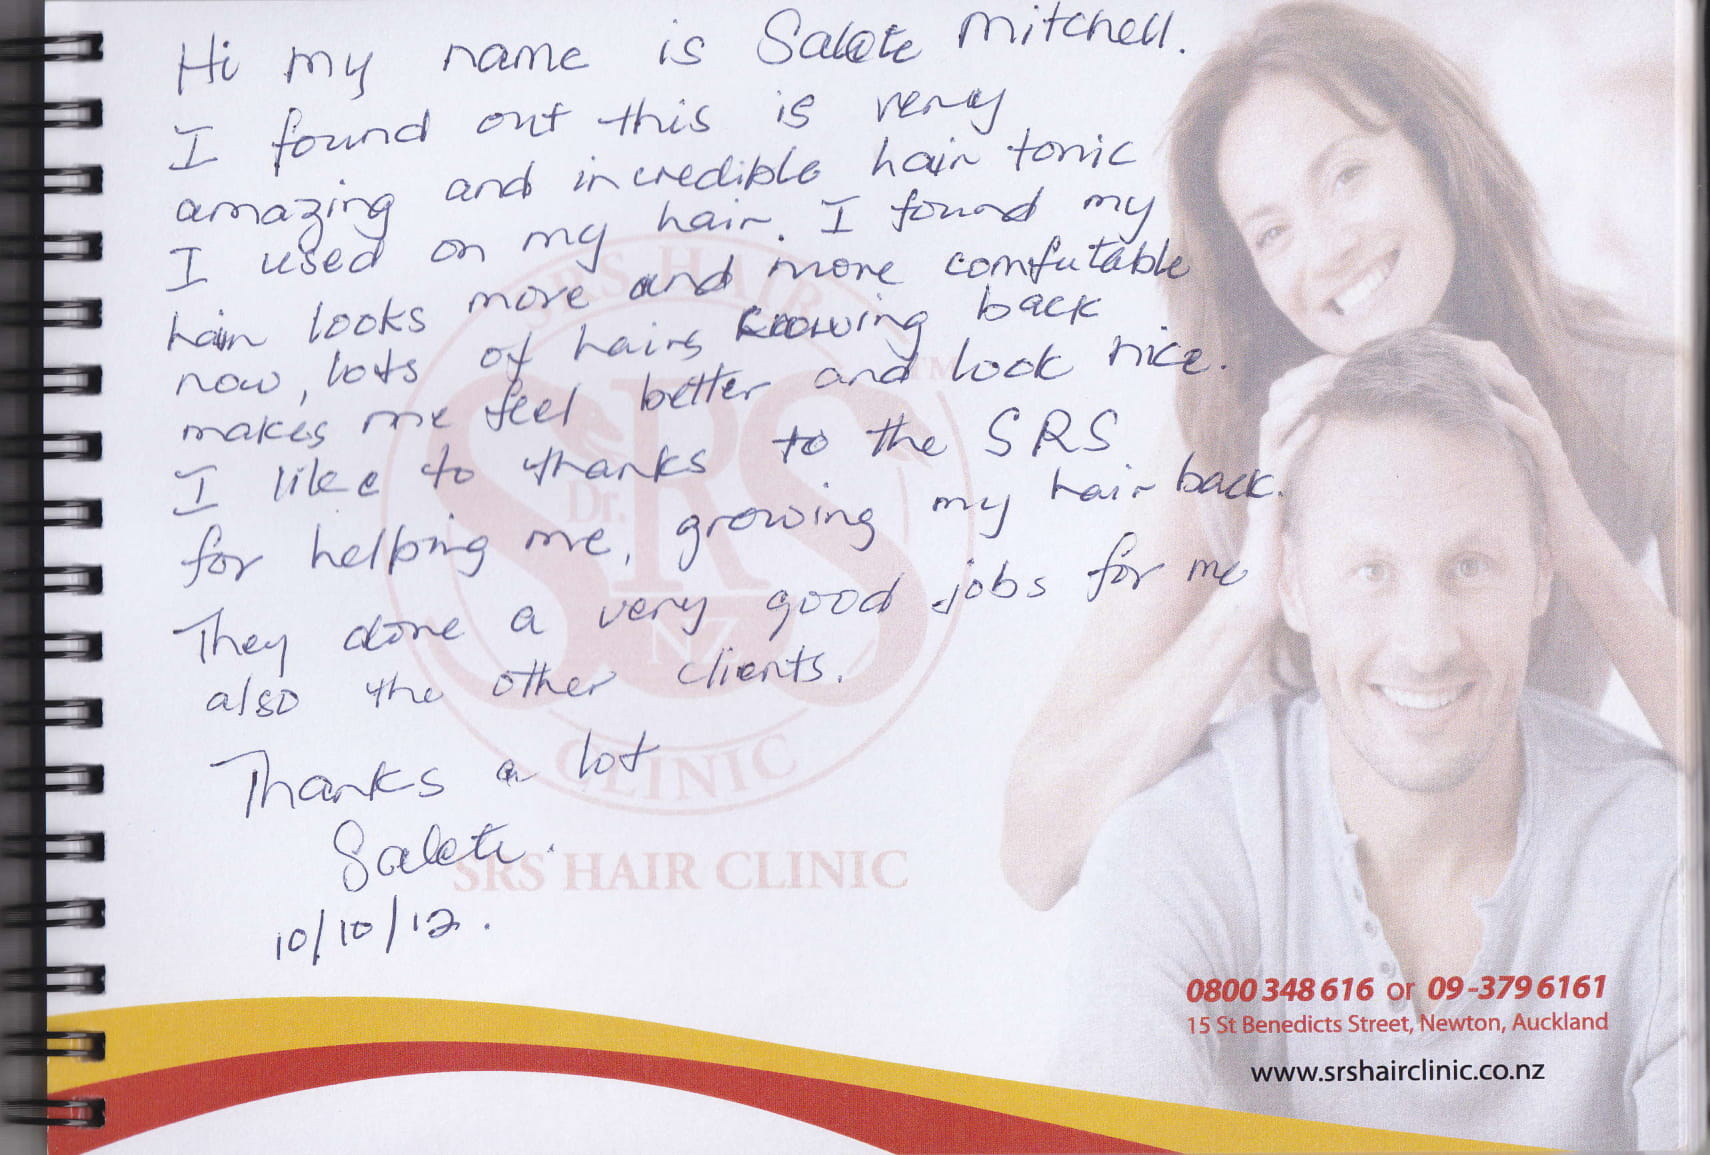 Hi my name is Salote Mitchell.
I found out this is very
amazing and incredible hair tonic
I used on my hair. I found my
hair looks more and more comfutable
now, lots of hairs growing back
makes me feel better and look nice.
I like to thanks to the SRS
for helping me, growing my hair back.
They done a very good jobs for me
also the other clients.
Thanks a lot
Salote.
10/10/12.
SRS HAIR
TM
Dr.
SRS
NZ
CLINIC
SRS HAIR CLINIC
0800 348 616 or 09-379 6161
15 St Benedicts Street, Newton, Auckland
www.srshairclinic.co.nz